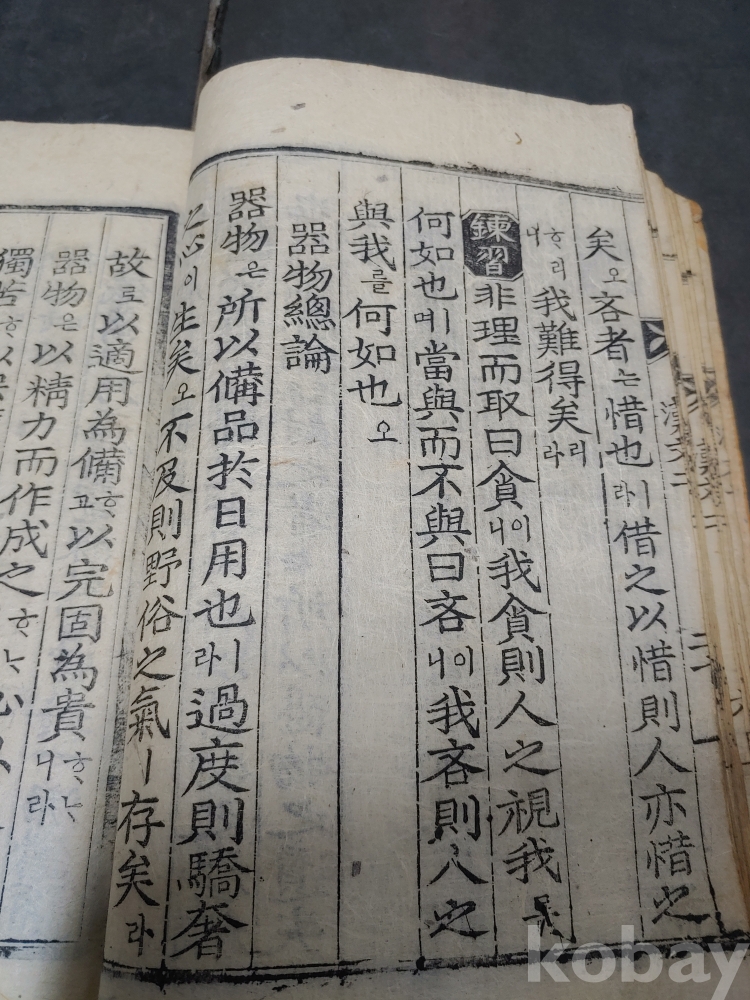 矣오吝者는惜也ㅣ라借之以惜則人亦惜之
ᄒᆞ리니我難得矣리라
鍊習 非理而取曰貪이니我貪則人之視我를
何如也ㅣ며當與而不與曰吝이니我吝則人之
與我를何如也오
器物總論
器物은所以備品於日用也ㅣ라過度則驕奢
之心이生矣오不及則野俗之氣ㅣ存矣라
故로以適用為備ᄒᆞ고以完固為貴ᄒᆞᄂᆞ니라
器物은以精力而作成之ᄒᆞᄂᆞ
獨苦ᄒᆞ
kobay